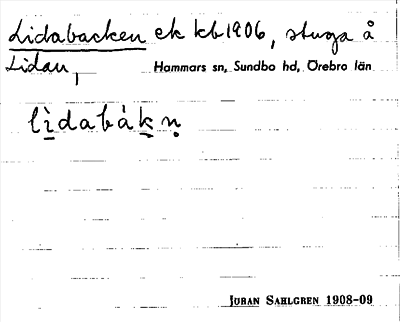 Lidabacken ek kb 1906, stuga å
Lidan,
Hammars sn, Sundbo hd, Örebro län
lìdabàkn̥
JÖRAN SAHLGREN 1908-09